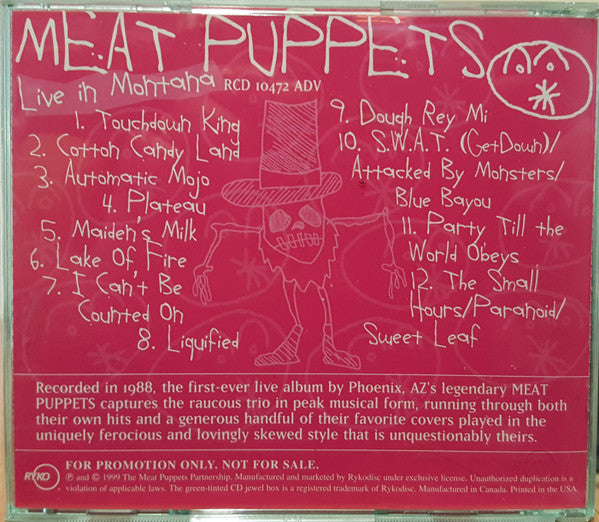 MEAT PUPPETS
Live in Montana RCD 10472 ADV
1. Touchdown King
2. Cotton Candy Land
3. Automatic Mojo
4. Plateau
5. Maiden's Milk
6. Lake Of Fire
7. I Can't Be
Counted On
8. Liquified
9. Dough Rey Mi
10. S.W.A.T. (Get Down)/
Attacked By Monsters/
Blue Bayou
11. Party Till the
World Obeys
12. The Small
Hours/Paranoid/
Sweet Leaf
Recorded in 1988, the first-ever live album by Phoenix, AZ's legendary MEAT
PUPPETS captures the raucous trio in peak musical form, running through both
their own hits and a generous handful of their favorite covers played in the
uniquely ferocious and lovingly skewed style that is unquestionably theirs.
RYKO
FOR PROMOTION ONLY. NOT FOR SALE.
℗ and © 1999 The Meat Puppets Partnership. Manufactured and marketed by Rykodisc under exclusive license. Unauthorized duplication is a
violation of applicable laws. The green-tinted CD jewel box is a registered trademark of Rykodisc. Manufactured in Canada. Printed in the USA.